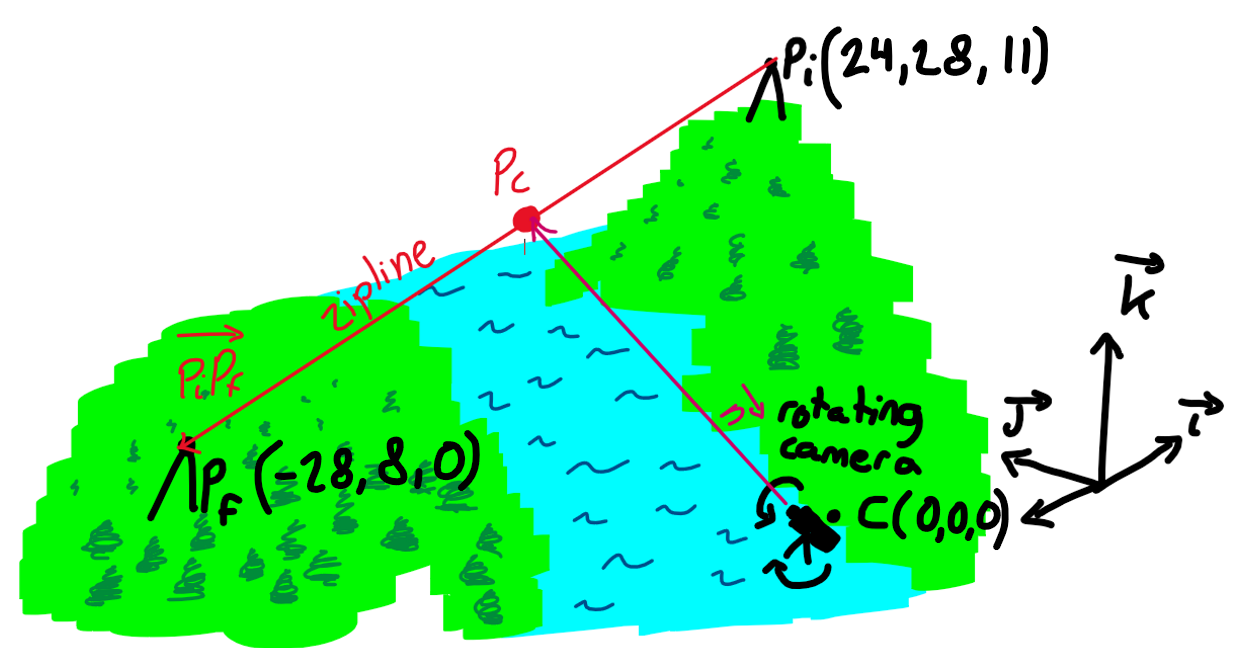 Pi(24,28,11)
Pc
zipline
PiPf
Pf(-28,8,0)
rotating
camera
C(0,0,0)
k
J
i